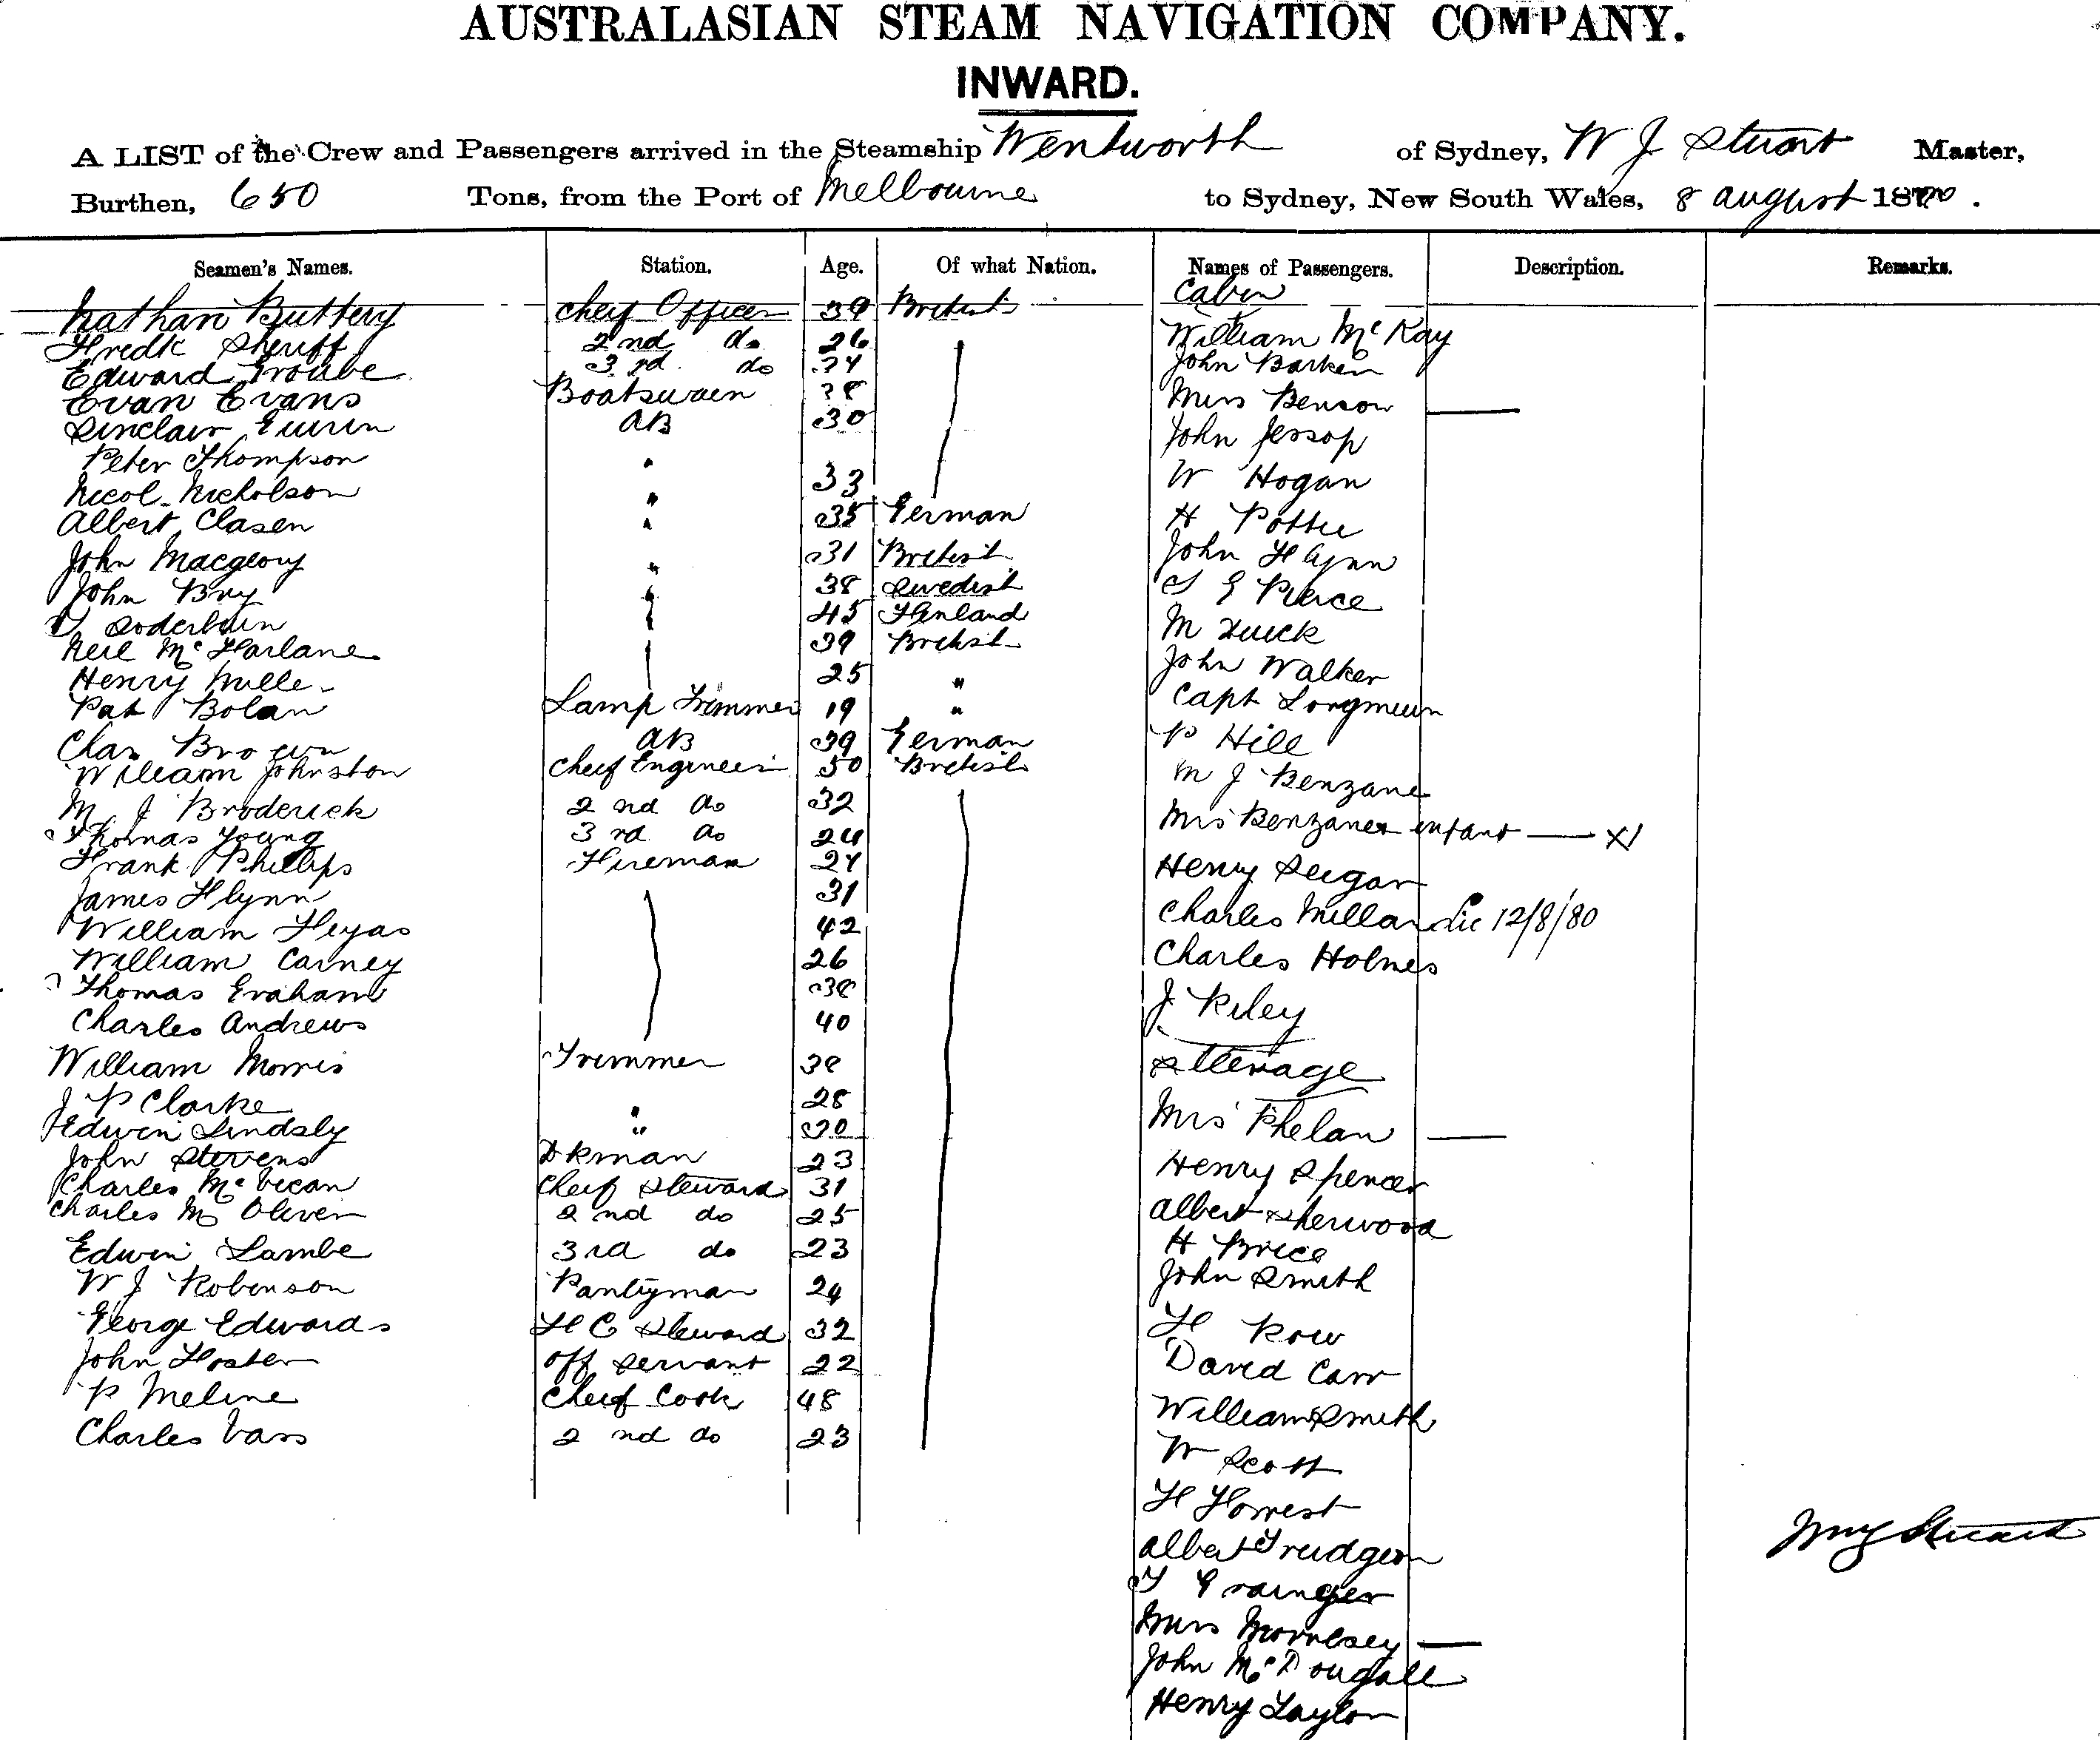 AUSTRALASIAN STEAM NAVIGATION COMPANY.
INWARD.
A LIST of the Crew and Passengers arrived in the Steamship Wentworth of Sydney, W J Stuart Master,
Burthen, 650 Tons, from the Port of Melbourne to Sydney, New South Wales, 8 august 18
Seamen's Names. Station. Age. Of what Nation. Names of Passengers. Description. Remarks.
Cabin
Nathan Buttery Cheif Officer 39 British
Fredk Sheriff 2nd do 26 William McKay
Edward Troube 3rd do John Barken
Evan Evans Boatswain 38 Miss Benson
Sinclair AB 30 John Jessop
Peter Thompson "
Nicol Nicholson " 33 W Hogan
Albert Clasen " 35 German H Potter
John Macgeory " 31 British John Flynn
John Bry " 38 Swedish T G Pierce
45 Finland M Quick
Neil McFarlane 39 British
Henry 25 " John Walker
Pat Bolan Lamp Trimmer 19 " Capt
Chas Brown AB 39 German P Hill
William Johnston Cheif Engineer 50 British M J Benzane
M J Broderick 2nd do 32 Mrs Benzane & infant X1
Thomas Young 3rd do 24
Frank Phillips Fireman 27 Henry
James Flynn 31
William Heyas 42 Charles Millar Lic 12/8/80
William Carney 26 Charles Holmes
Thomas Graham 38
Charles Andrews 40 J Riley
William Morris Trimmer 38 Steerage
J P Clarke " 28
Edwin Lindsly " 30 Mrs Phelan
John Stevens Dkman 23
Charles Cheif Steward 31 Henry Spencer
Charles M Oliver 2nd do 25 Albert Sherwood
Edwin Lambe 3rd do 23 H Brice
W J Robinson Pantryman 24 John Smith
George Edwards F C Steward 32 F Row
John Foster Off Servant 22 David Carr
P Meline Cheif Cook 48 William Smith
Charles Vass 2nd do 23
W Scott
F Forrest
Albert Trudgeon
T Grainger
Mrs
John McDougall
Henry Taylor